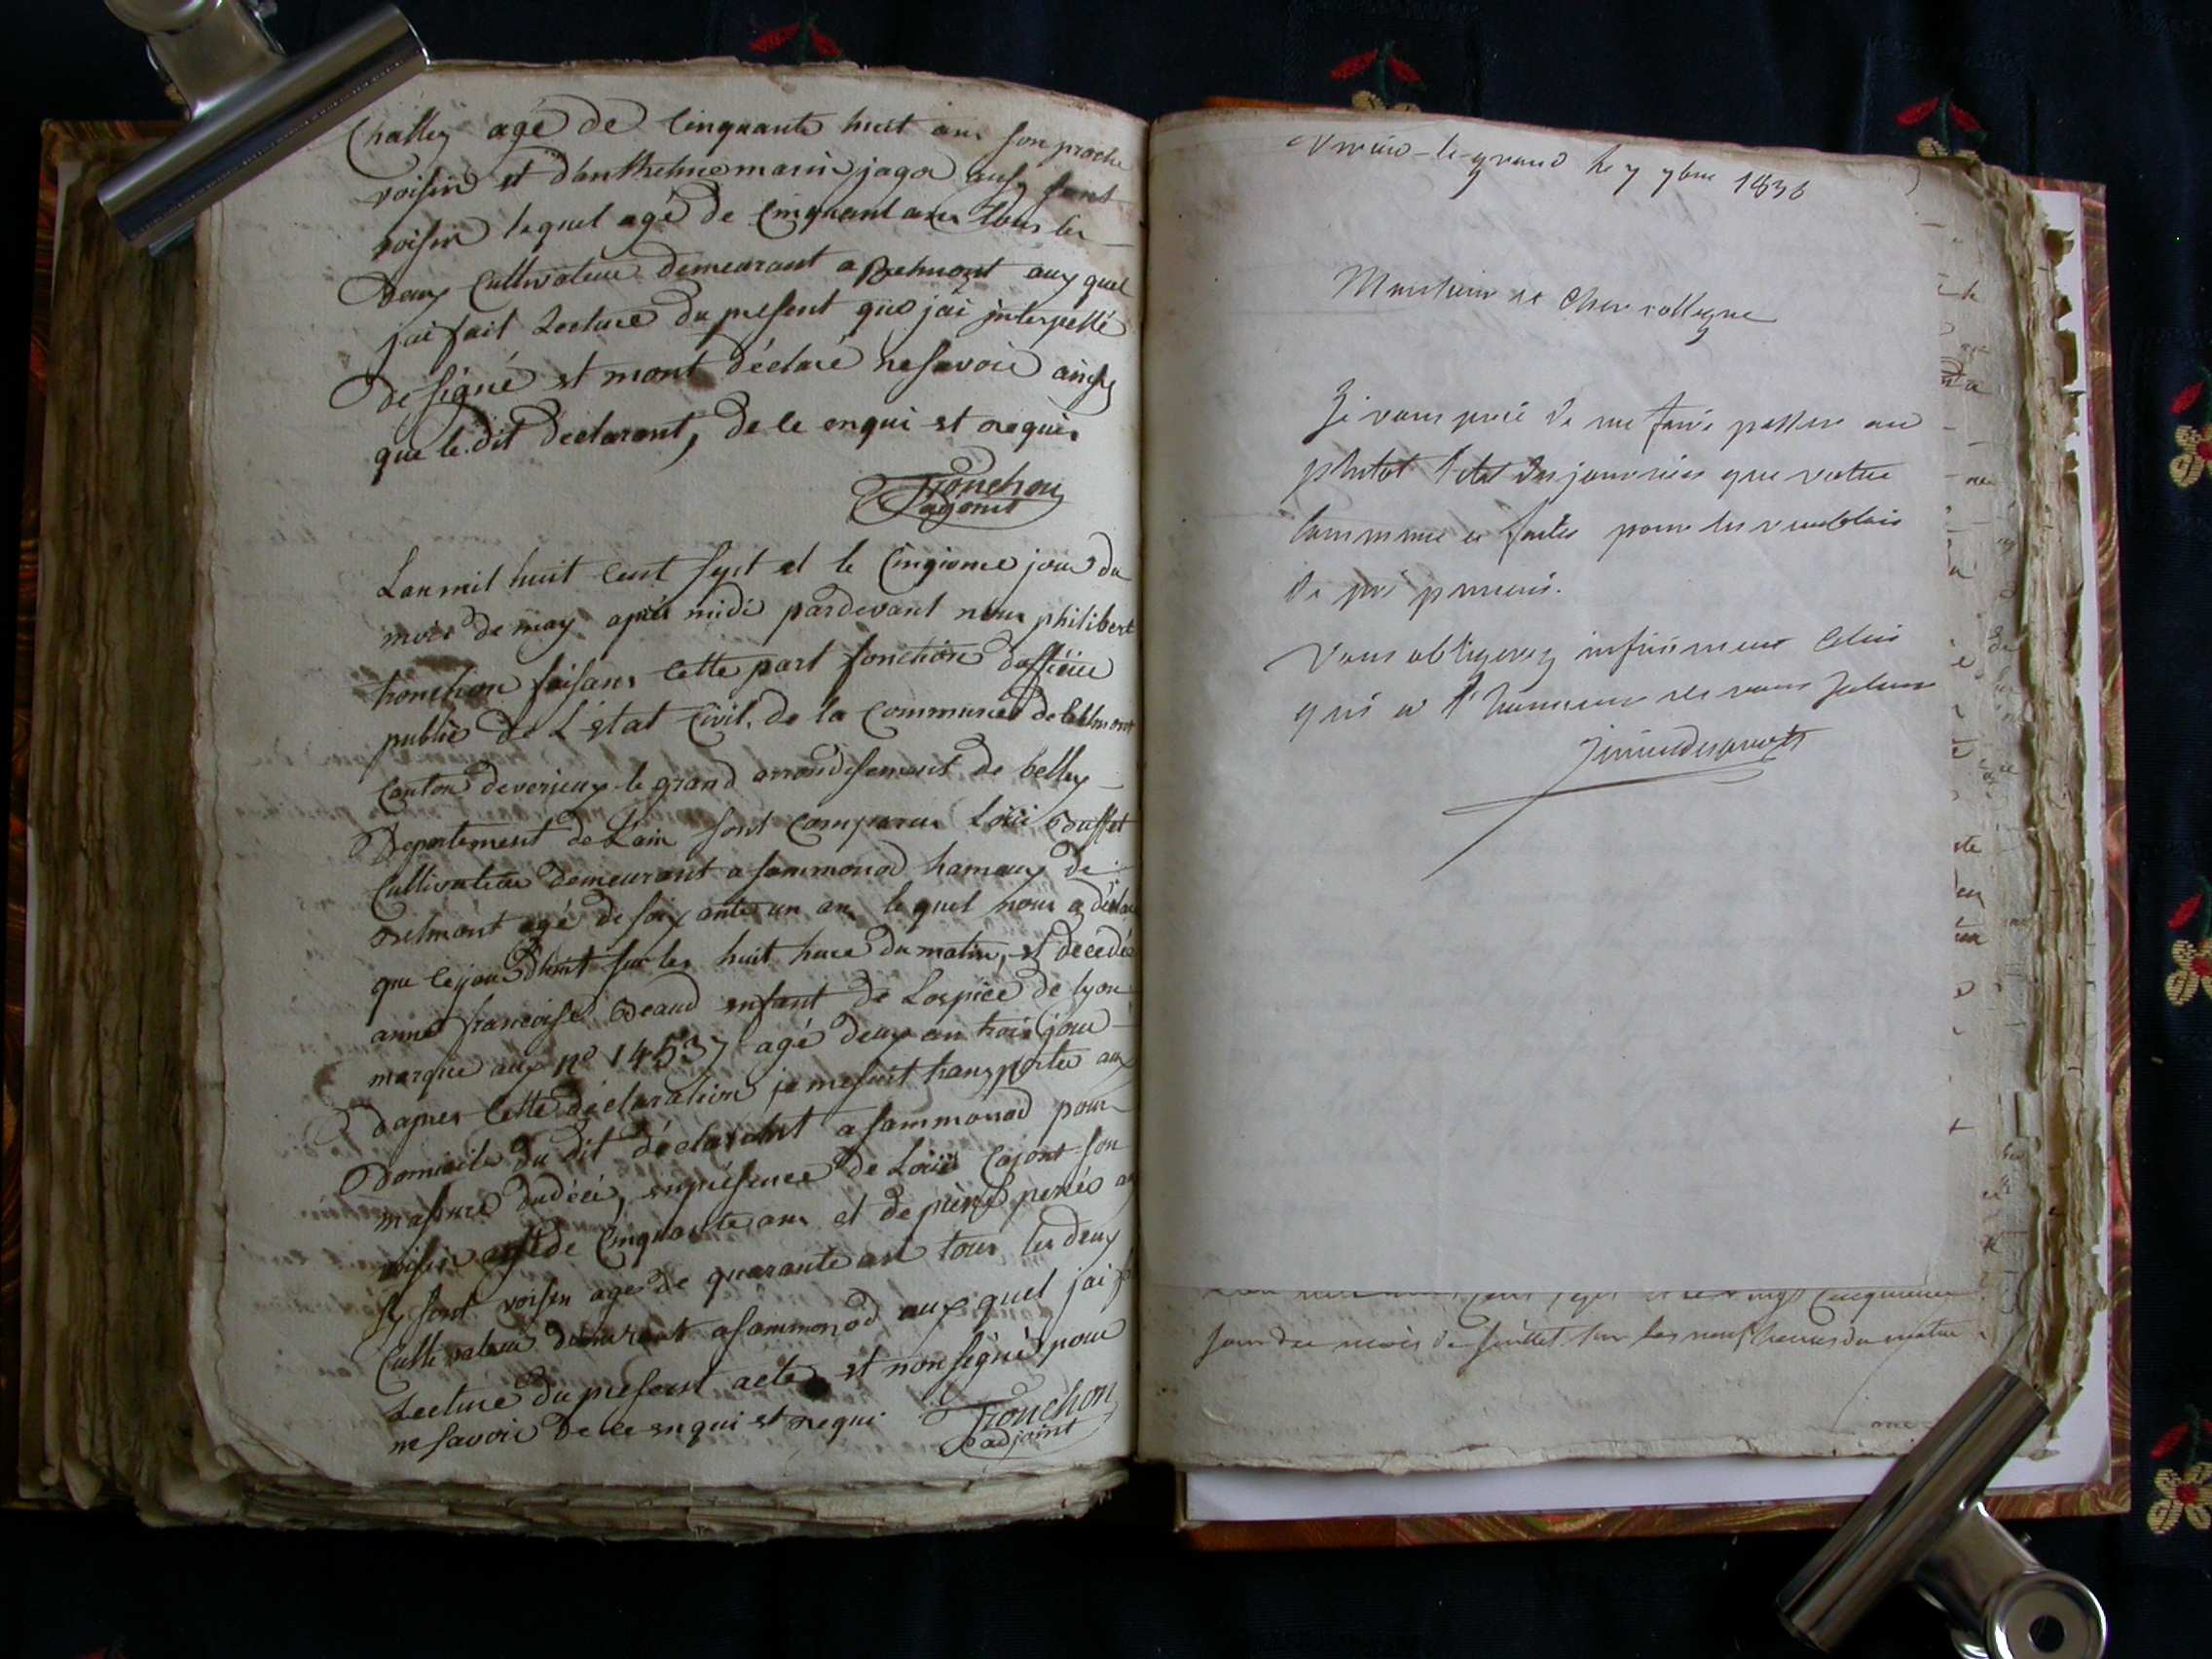 Challey agé de Cinquante huit ans son proche
voisin et danthelme marin jagot ausy sont
voisin lequel agé de Cinquant ans tous les
deux Cultivateur demeurant a Belmont aux quel
jai fait Lecture du present que jai interpellé
de signé et mont déclaré ne savoir ainsy
que le dit déclarant, de ce enqui et requis
Tronchon
adjoint
Lan mil huit Cent sept et le Cinqieme jour du
mois de may aprés midi pardevant nous philibert
tronchon faisans Cette part fonction dofficier
public de L'état Civil, de la Commune de belmont
Canton de verieux le grand arrondisement de belley
Departement de Lain sont Comparus Loüis Buffet
Cultivateur demeurant a sammonod hameaux de
Belmont agé de soixante un ans lequel nous a déclaré
que cejourdhuit sur les huit hure du matin, et décédée
anne francoise Beaud enfant de Lospice de lyon
marquée aux no 14537 agé deux an trois jour
daprés Cette déclaration je me suit transporter aux
Domicile du dit déclarant a sammonod pour
massuré dudécé, enprésence de Loüis Cajont son
voisin agé de Cinquante ans et de pierre
sy sont voisin age de quarante an tous les deux
Cultivateur demeurant a sammonod aux quel jai
Lecture du present acte et non signé pour
ne savoir de ce enqui et requi
Tronchon
adjoint
Virieu-le-grand le 7 9bre 1836
Monsieur et Cher collegue
Je vous prie de me faire passer au
plutot l'état des journées que votre
Commune a faites pour les
Vous obligerez infiniment Celui
qui a l'honneur de vous saluer
jour du mois de juillet sur les neuf heures du matin